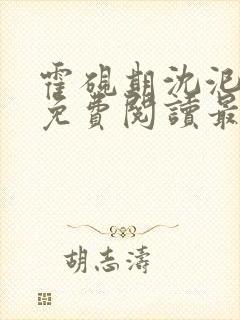 霍硯期沈泥
免費閱讀最
胡志濤